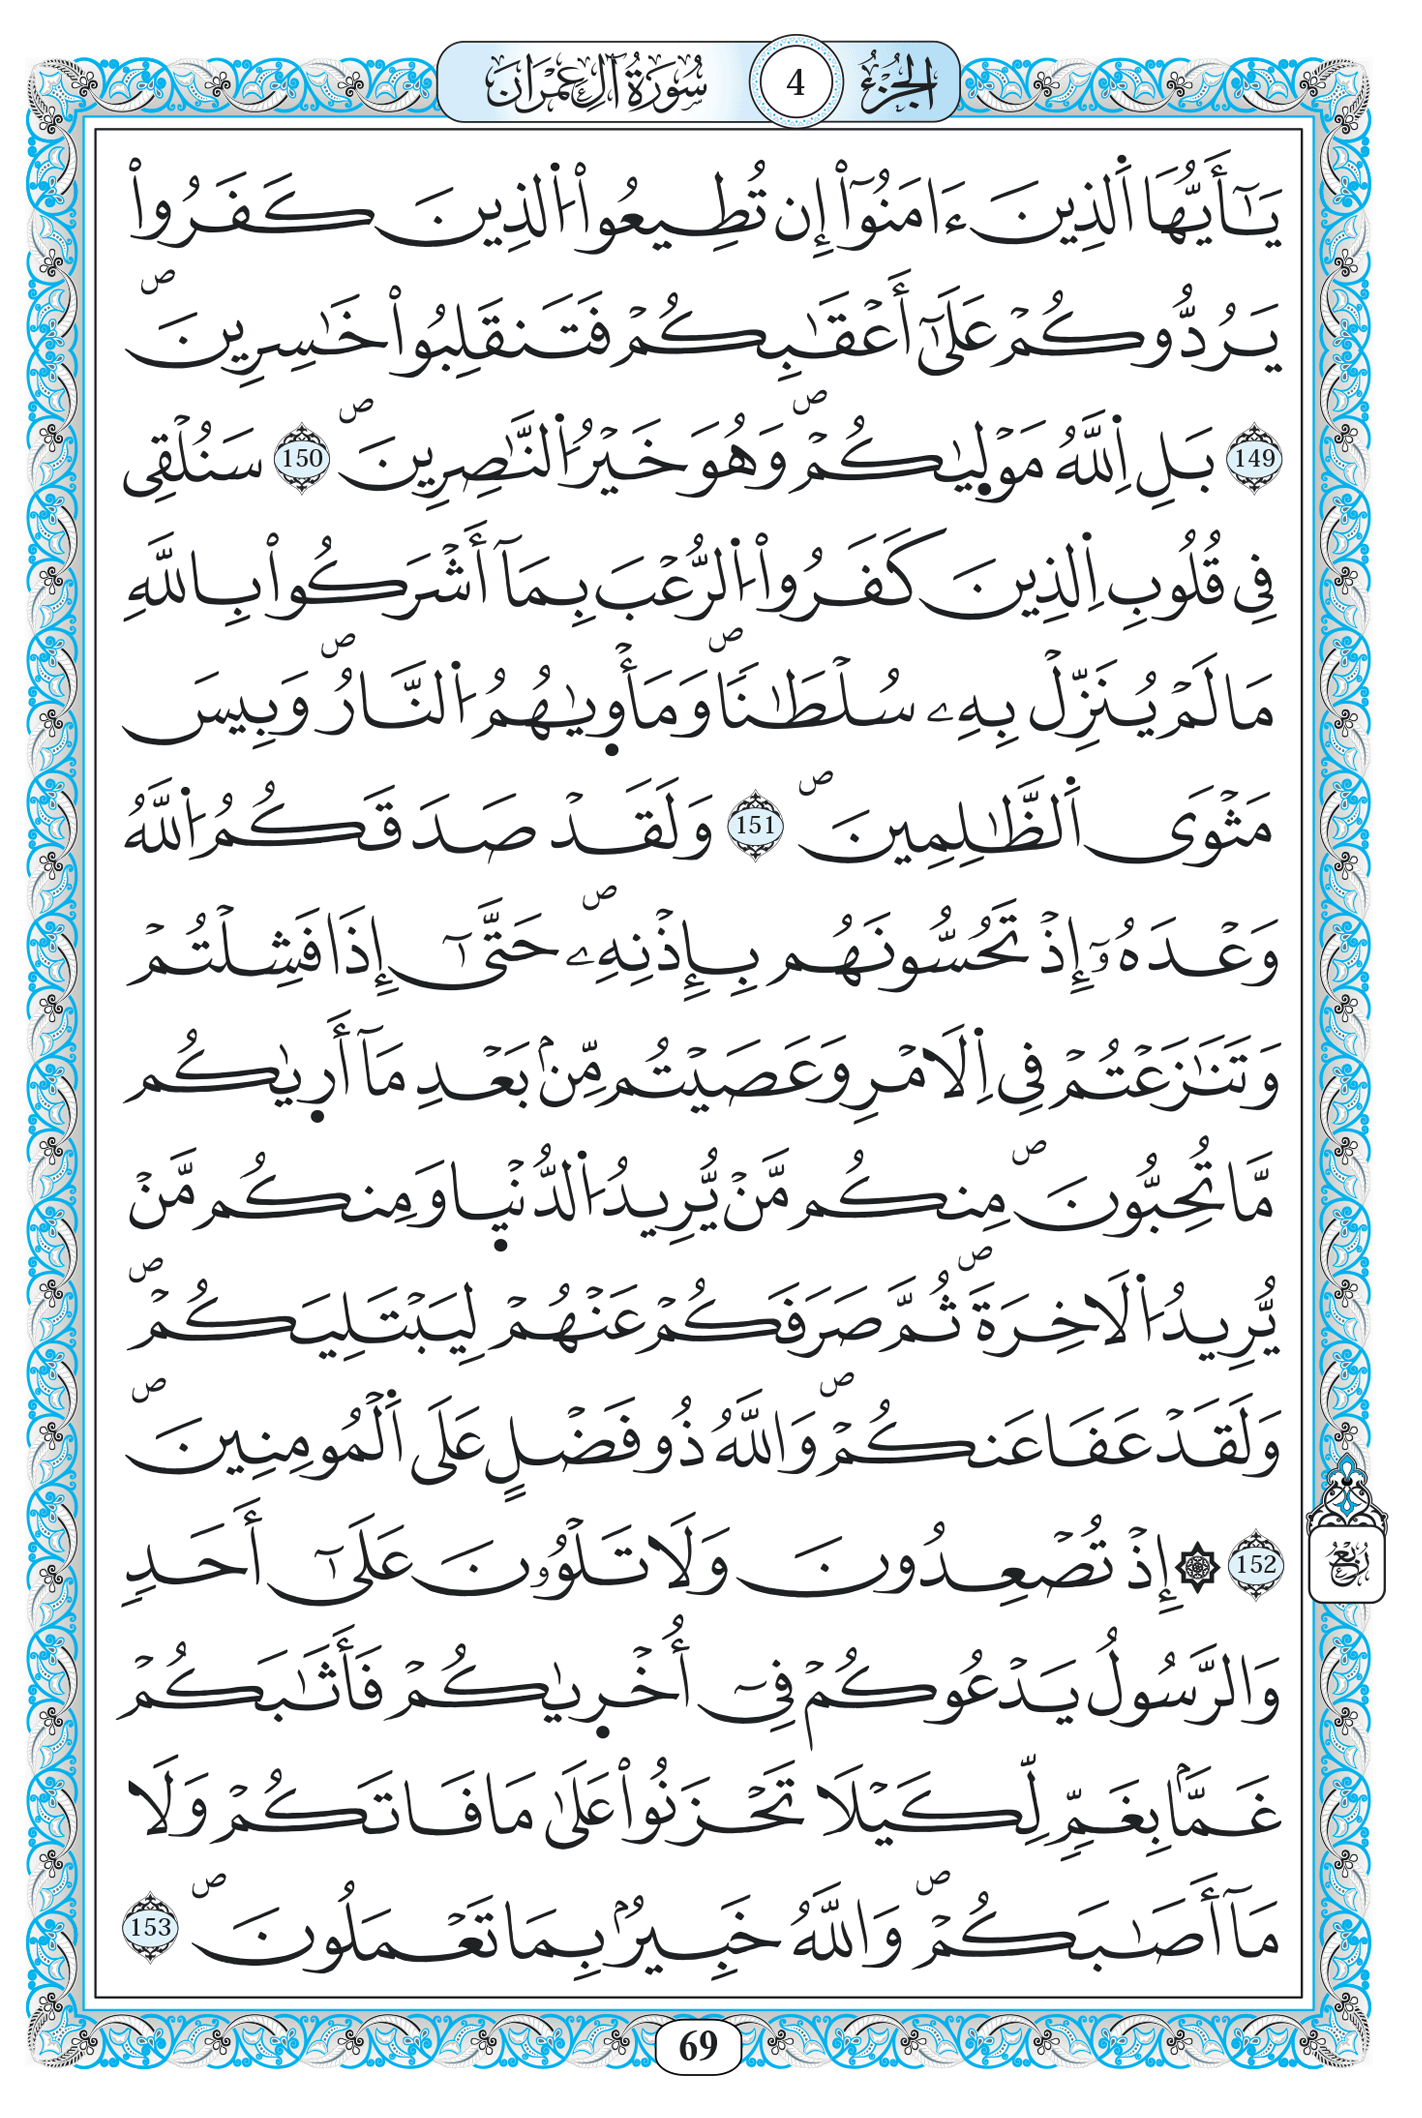 الجزء 4 سورة آل عمران
يَٰٓأَيُّهَا اَ۬لذِينَ ءَامَنُوٓاْ إِن تُطِيعُواْ اُ۬لذِينَ كَفَرُواْ
يَرُدُّوكُمْ عَلَىٰٓ أَعْقَٰبِكُمْ فَتَنقَلِبُواْ خَٰسِرِينَۖ
149 بَلِ اِ۬للَّهُ مَوْل۪يٰكُمْۖ وَهُوَ خَيْرُ اُ۬لنَّٰصِرِينَۖ 150 سَنُلْقِے
فِے قُلُوبِ اِ۬لذِينَ كَفَرُواْ اُ۬لرُّعْبَ بِمَآ أَشْرَكُواْ بِاللَّهِ
مَا لَمْ يُنَزِّلْ بِهِۦ سُلْطَٰناٗۖ وَمَأْو۪يٰهُمُ اُ۬لنَّارُۖ وَبِيسَ
مَثْوَى اَ۬لظَّٰلِمِينَۖ 151 وَلَقَدْ صَدَقَكُمُ اُ۬للَّهُ
وَعْدَهُۥٓ إِذْ تَحُسُّونَهُم بِإِذْنِهِۦۖ حَتَّىٰٓ إِذَا فَشِلْتُمْ
وَتَنَٰزَعْتُمْ فِے اِ۬لَامْرِ وَعَصَيْتُم مِّنۢ بَعْدِ مَآ أَر۪يٰكُم
مَّا تُحِبُّونَۖ مِنكُم مَّنْ يُّرِيدُ اُ۬لدُّنْي۪ا وَمِنكُم مَّنْ
يُّرِيدُ اُ۬لَاخِرَةَۖ ثُمَّ صَرَفَكُمْ عَنْهُمْ لِيَبْتَلِيَكُمْۖ
وَلَقَدْ عَفَا عَنكُمْۖ وَاللَّهُ ذُو فَضْلٍ عَلَى اَ۬لْمُومِنِينَۖ
152 ۞ إِذْ تُصْعِدُونَ وَلَا تَلْوُۥنَ عَلَىٰٓ أَحَدٖ
وَالرَّسُولُ يَدْعُوكُمْ فِےٓ أُخْر۪يٰكُمْ فَأَثَٰبَكُمْ
غَمَّاۢ بِغَمّٖ لِّكَيْلَا تَحْزَنُواْ عَلَىٰ مَا فَاتَكُمْ وَلَا
مَآ أَصَٰبَكُمْۖ وَاللَّهُ خَبِيرُۢ بِمَا تَعْمَلُونَۖ 153
ربع
69